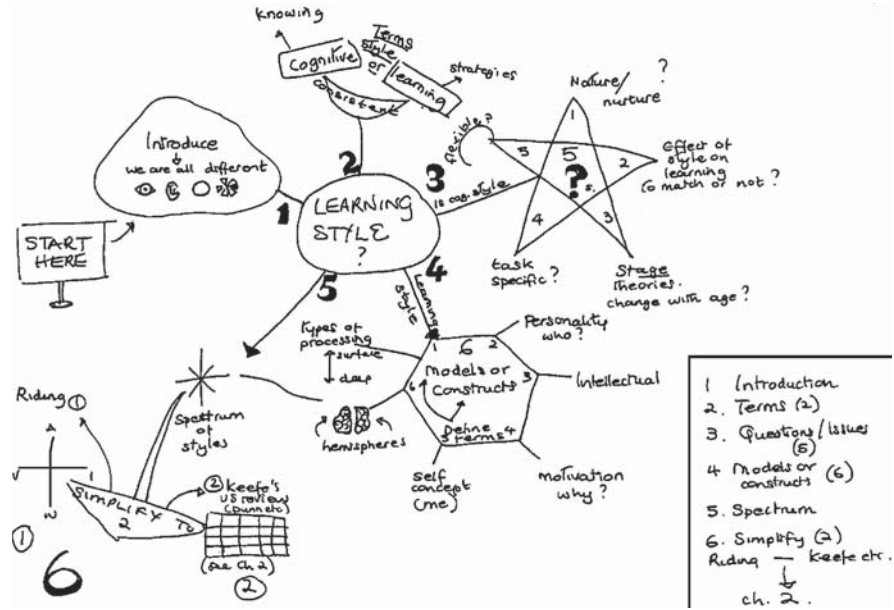 START
HERE
Introduce
we are all different
1
LEARNING
STYLE
?
2
knowing
cognitive
Terms
style
or
learning
strategies
consistent
?
3
is cog. style
flexible?
Nature/
nurture
?
1
Effect of
style on
learning
to match or not?
2
Stage
theories.
change with age?
3
task
specific?
4
5
5
?
s.
4
Learning
style
6
Models or
constructs
Define
terms
1
2
3
4
5
6
Personality
who?
Intellectual
motivation
why?
Self
concept
(me)
hemispheres
types of
processing
surface
deep
5
Spectrum
of
styles
Riding ①
SIMPLIFY TO
2
② Keefe's
US review
(Dunn etc)
(see Ch 2)
②
①
6
1 Introduction
2. Terms (2)
3. Questions/Issues
(5)
4 Models or
constructs (6)
5. Spectrum
6. Simplify (2)
Riding — Keefe etc.
ch. 2.